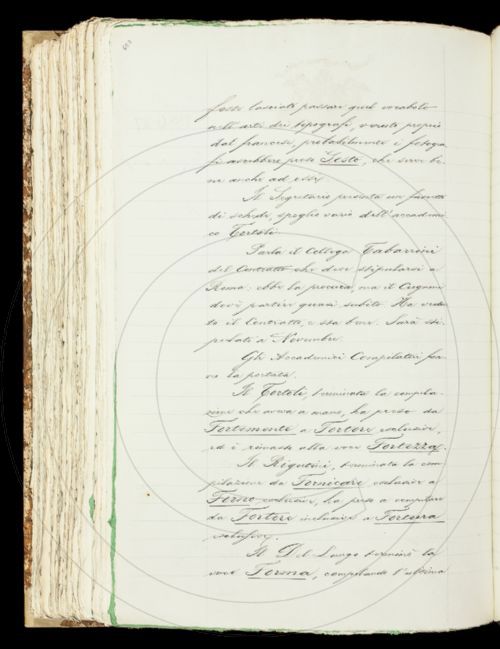 fosse lasciato passare quel vocabolo
nell'arte dei tipografi, venuto proprio
dal francese, probabilmente i fotogra
fi avrebbero preso Testo, che serve be
ne anche ad essi.
Il Segretario presenta un fascetto
di schede, spoglio vario dell'accademi
co Tortoli
Parla il Collega Tabarrini
del Contratto che deve stipularsi a
Roma: ebbe la procura, ma il
dovè partire quasi subito. Ha vedu
to il Contratto, e sta bene. Sarà sti
pulato a Novembre.
Gli Accademici Compilatori fan
no la portata.
Il Tortoli, terminata la compila
zione che aveva a mano, ha preso da
Fortemente a Fortore esclusive,
ed è rimasto alla voce Fortezza.
Il Rigutini, terminata la com
pilazione da Fornicare esclusive a
Forno esclusive, ha preso a compilare
da Fortore inclusive a Fortura
esclusive.
Il Del Lungo terminò la
voce Forma, compilando l'ultima